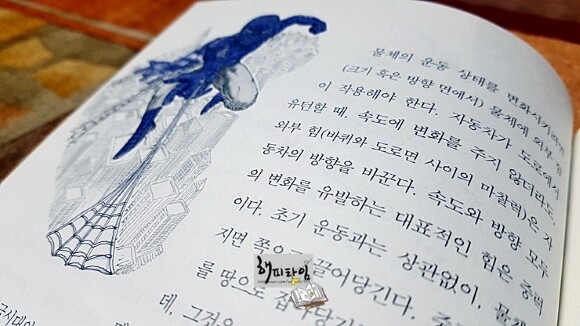 물체의 운동 상태를 변화시키려면
(크기 혹은 방향 면에서) 물체에 외부 힘
이 작용해야 한다. 자동차가 도로에서
유턴할 때, 속도에 변화를 주지 않더라도
외부 힘(바퀴와 도로면 사이의 마찰력)은 자
동차의 방향을 바꾼다. 속도와 방향 모두
의 변화를 유발하는 대표적인 힘은 중력
이다. 초기 운동과는 상관없이, 물체
지면 쪽으 끌어당긴다.
를 땅으로
데, 그것은
해피타임